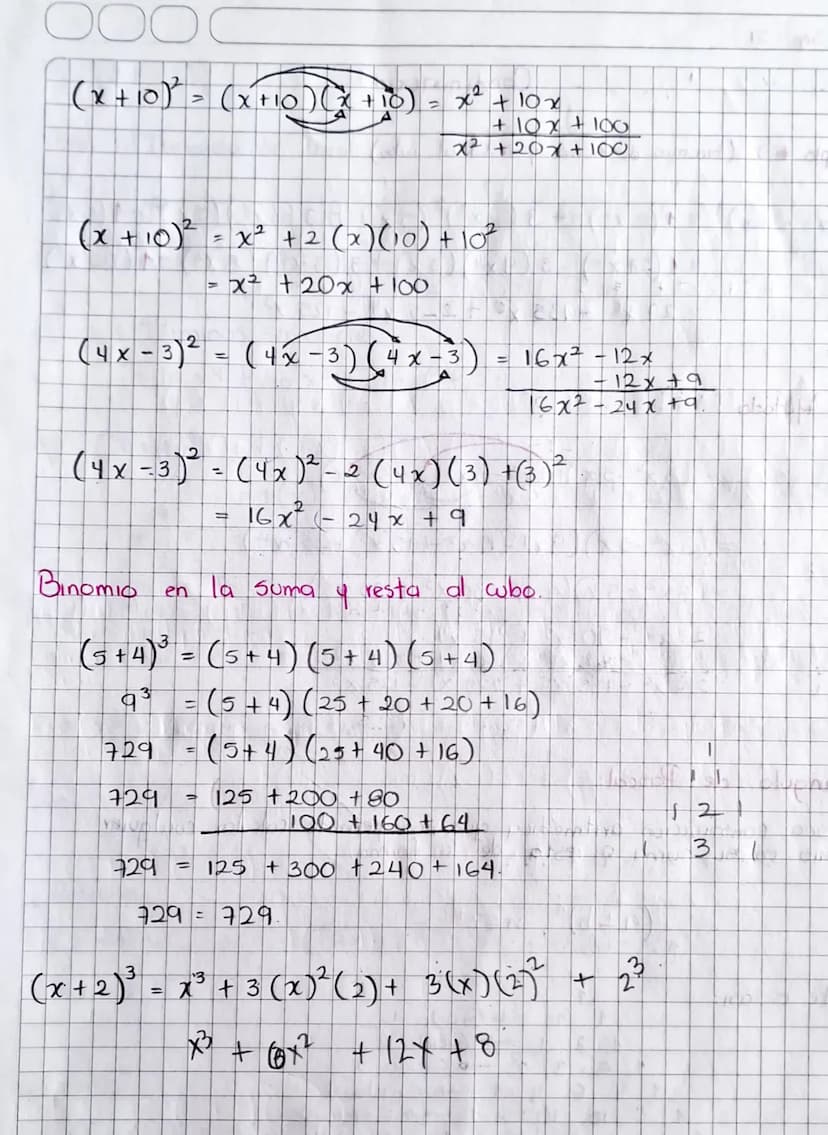 (x + 10)² = (x + 10)(x + 10) = x² + 10x
+ 10x + 100
x² + 20x + 100
(x + 10)² = x² + 2 (x)(10) + 10²
= x² + 20x + 100
(4x - 3)² = (4x - 3)(4x - 3) = 16x² - 12x
- 12x + 9
16x² - 24x + 9.
(4x - 3)² = (4x)² - 2 (4x)(3) + (3)²
= 16x² - 24x + 9
Binomio en la suma y resta al cubo.
(5 + 4)³ = (5 + 4)(5 + 4)(5 + 4)
9³ = (5 + 4)(25 + 20 + 20 + 16)
729 = (5 + 4)(25 + 40 + 16)
729 = 125 + 200 + 80
100 + 160 + 64
729 = 125 + 300 + 240 + 164.
729 = 729.
1
1 1
1 2 1
1 3
(x + 2)³ = x³ + 3 (x)² (2) + 3(x)(2)² + 2³
x³ + 6x² + 12x + 8